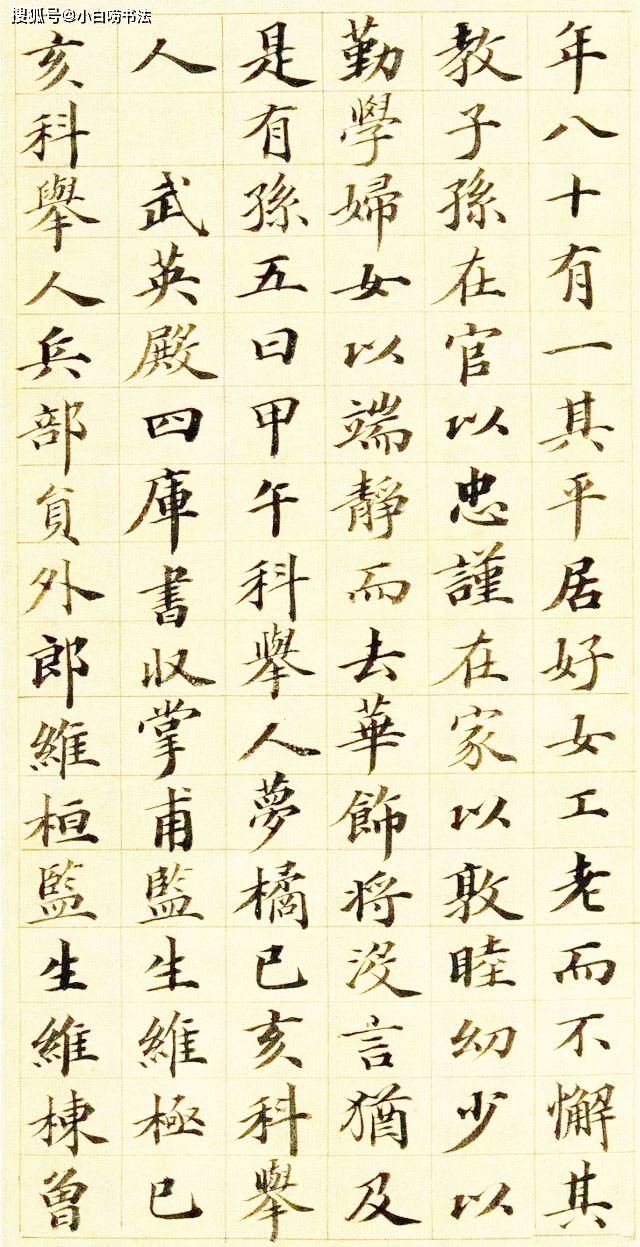 搜狐号@小白唠书法
年八十有一其平居好女工老而不懈其
教子孫在官以忠謹在家以敦睦幼少以
勤學婦女以端靜而去華飾将没言猶及
是有孫五曰甲午科舉人夢橘已亥科舉
人武英殿四庫書収掌甫監生維極已
亥科舉人兵部員外郎維桓監生維棟曾